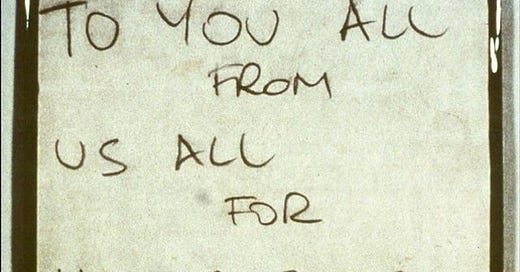 TO YOU ALL
FROM
US ALL
FOR